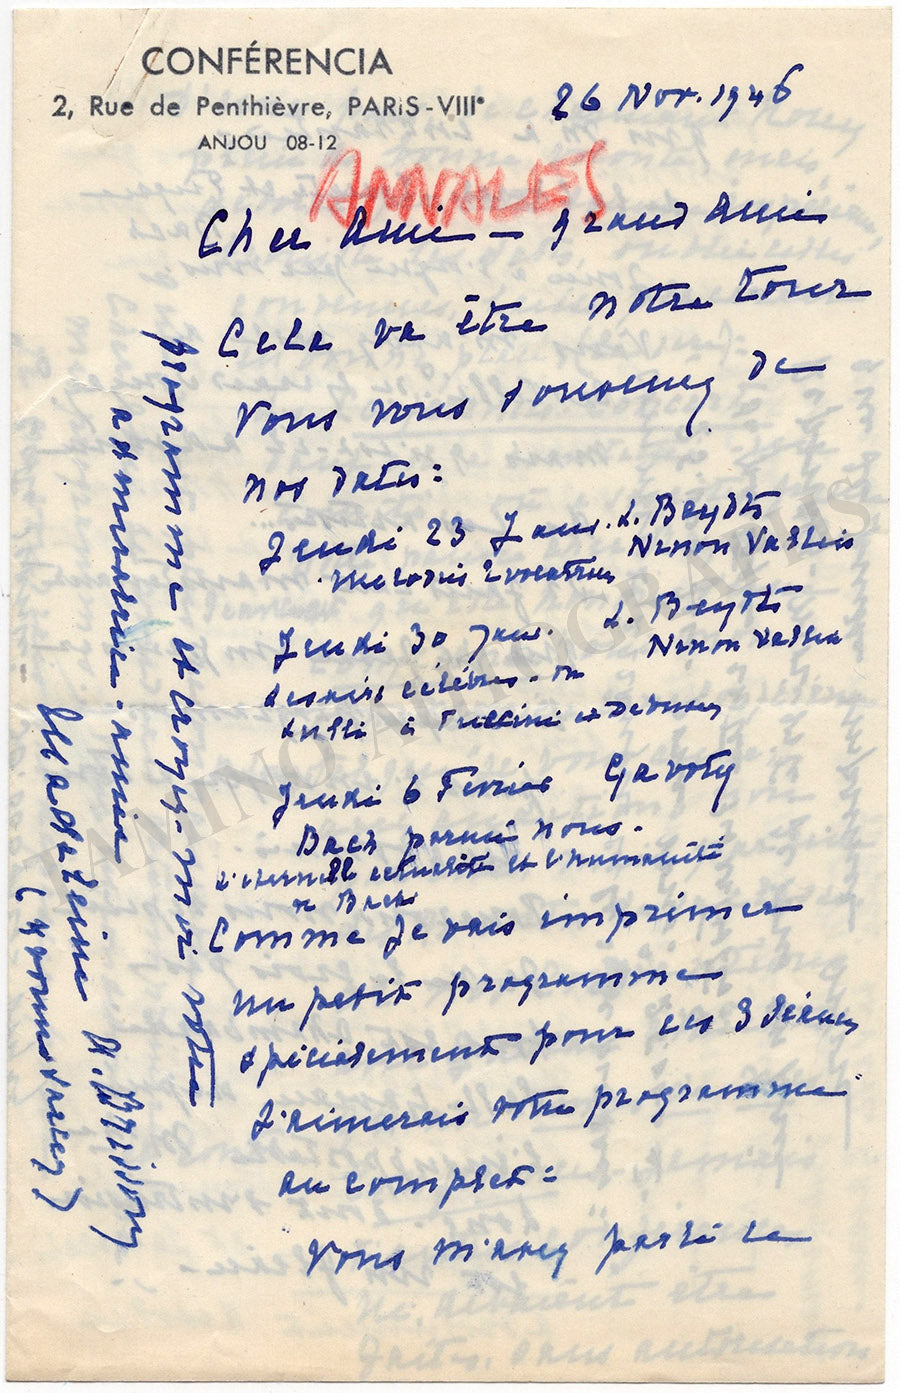 CONFÉRENCIA
2, Rue de Penthièvre, PARIS-VIIIe
ANJOU 08-12
26 Nov. 1946
ANNALES
Cher Ami – grand Ami
Cela va être notre tour
Vous vous souvenez de
nos dates :
Jeudi 23 Janv. L. Beydts
Ninon Vallin
Mélodies
Jeudi 30 Janv. L. Beydts
Ninon Vallin
célèbres - de
Lulli à Puccini et Debussy
Jeudi 6 Février Gavoty
Bach parmi nous.
L'éternelle actualité et l'humanité
de Bach
Comme je vais imprimer
un petit programme
spécialement pour ces 3 séances
J'aimerais votre programme
au complet :
Vous m'avez parlé de
programme et croyez-moi votre
admiratrice - amie
Madeleine A. Brisson
TAMINO AUTOGRAPHS